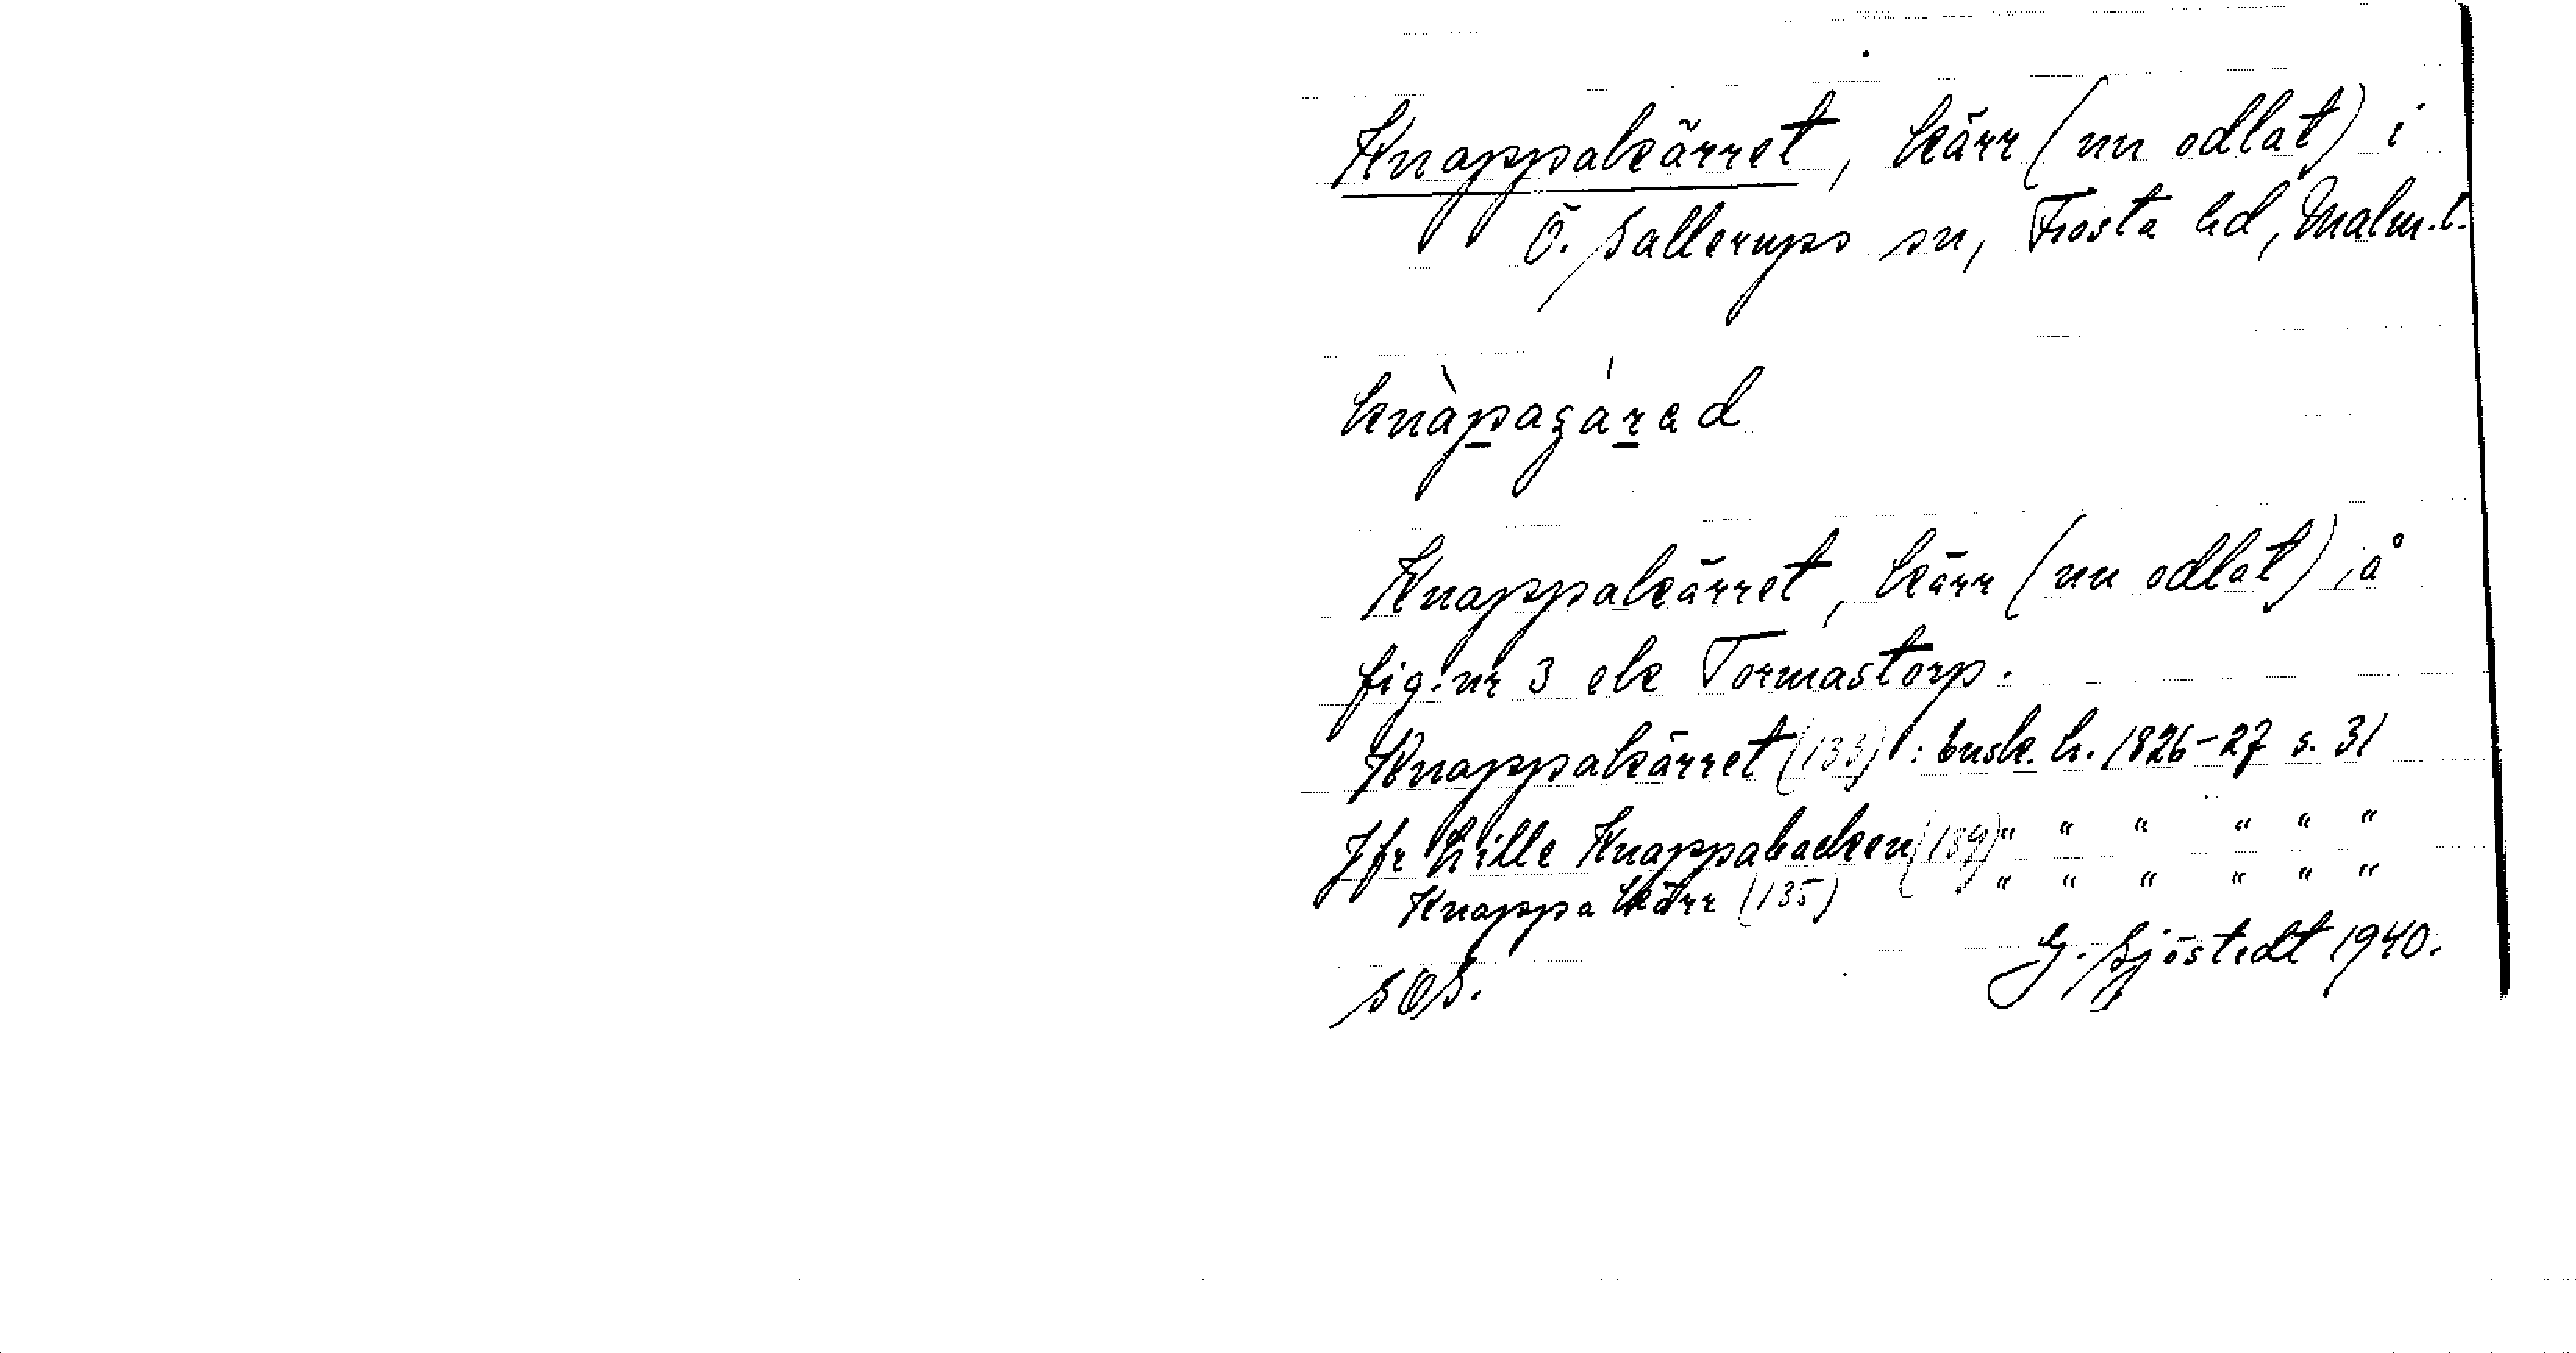 Knappakärret, kärr (nu odlat) i
Ö. Sallerups sn, Frosta hd, Malm.l.
knàpagárad
Knappakärret, kärr (nu odlat) å
fig. nr 3 ek Tormastorp.
Knappakärret (133): ensk. h. 1826-27 s. 31
Jfr Lille Knappabacken (139) " " " " " "
Knappa kärr (135) " " " " " "
SOS. G. Sjöstedt 1940.